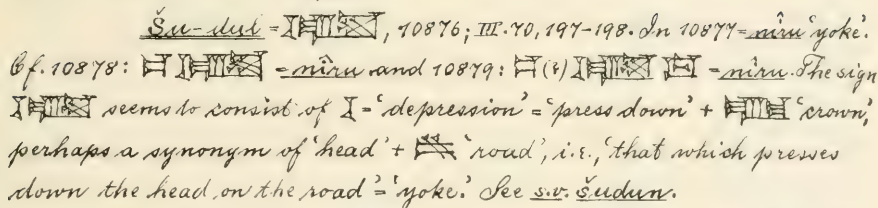 Šu-dul = , 10876; III. 70, 197-198. In 10877 = nîru 'yoke'.
Cf. 10878: = nîru and 10879: (?) = nîru. The sign
seems to consist of = 'depression' = 'press down' + 'crown',
perhaps a synonym of 'head' + 'road', i.e., 'that which presses
down the head on the road' = 'yoke'. See s.v. šudun.